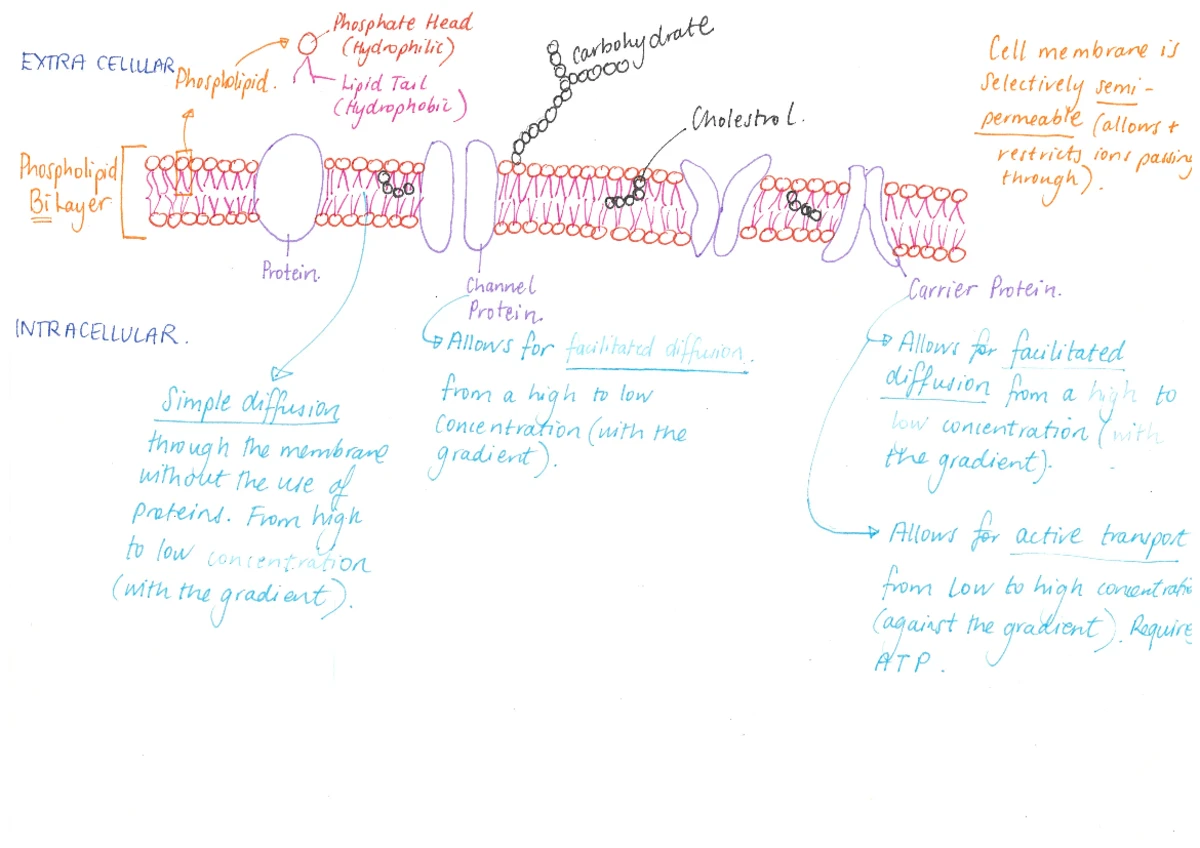 EXTRA CELLULAR
Phospholipid.
Phosphate Head
(Hydrophilic)
Lipid Tail
(Hydrophobic)
carbohydrate
Cholestrol.
Cell membrane is
selectively semi-
permeable (allows +
restricts ions passing
through).
Phospholipid
Bi Layer
Protein.
Channel
Protein.
Carrier Protein.
INTRACELLULAR.
Simple diffusion
through the membrane
without the use of
proteins. From high
to low concentration
(with the gradient).
Allows for facilitated diffusion
from a high to low
concentration (with the
gradient).
Allows for facilitated
diffusion from a high to
low concentration (with
the gradient).
Allows for active transport
from low to high concentratio
(against the gradient). Require
ATP.